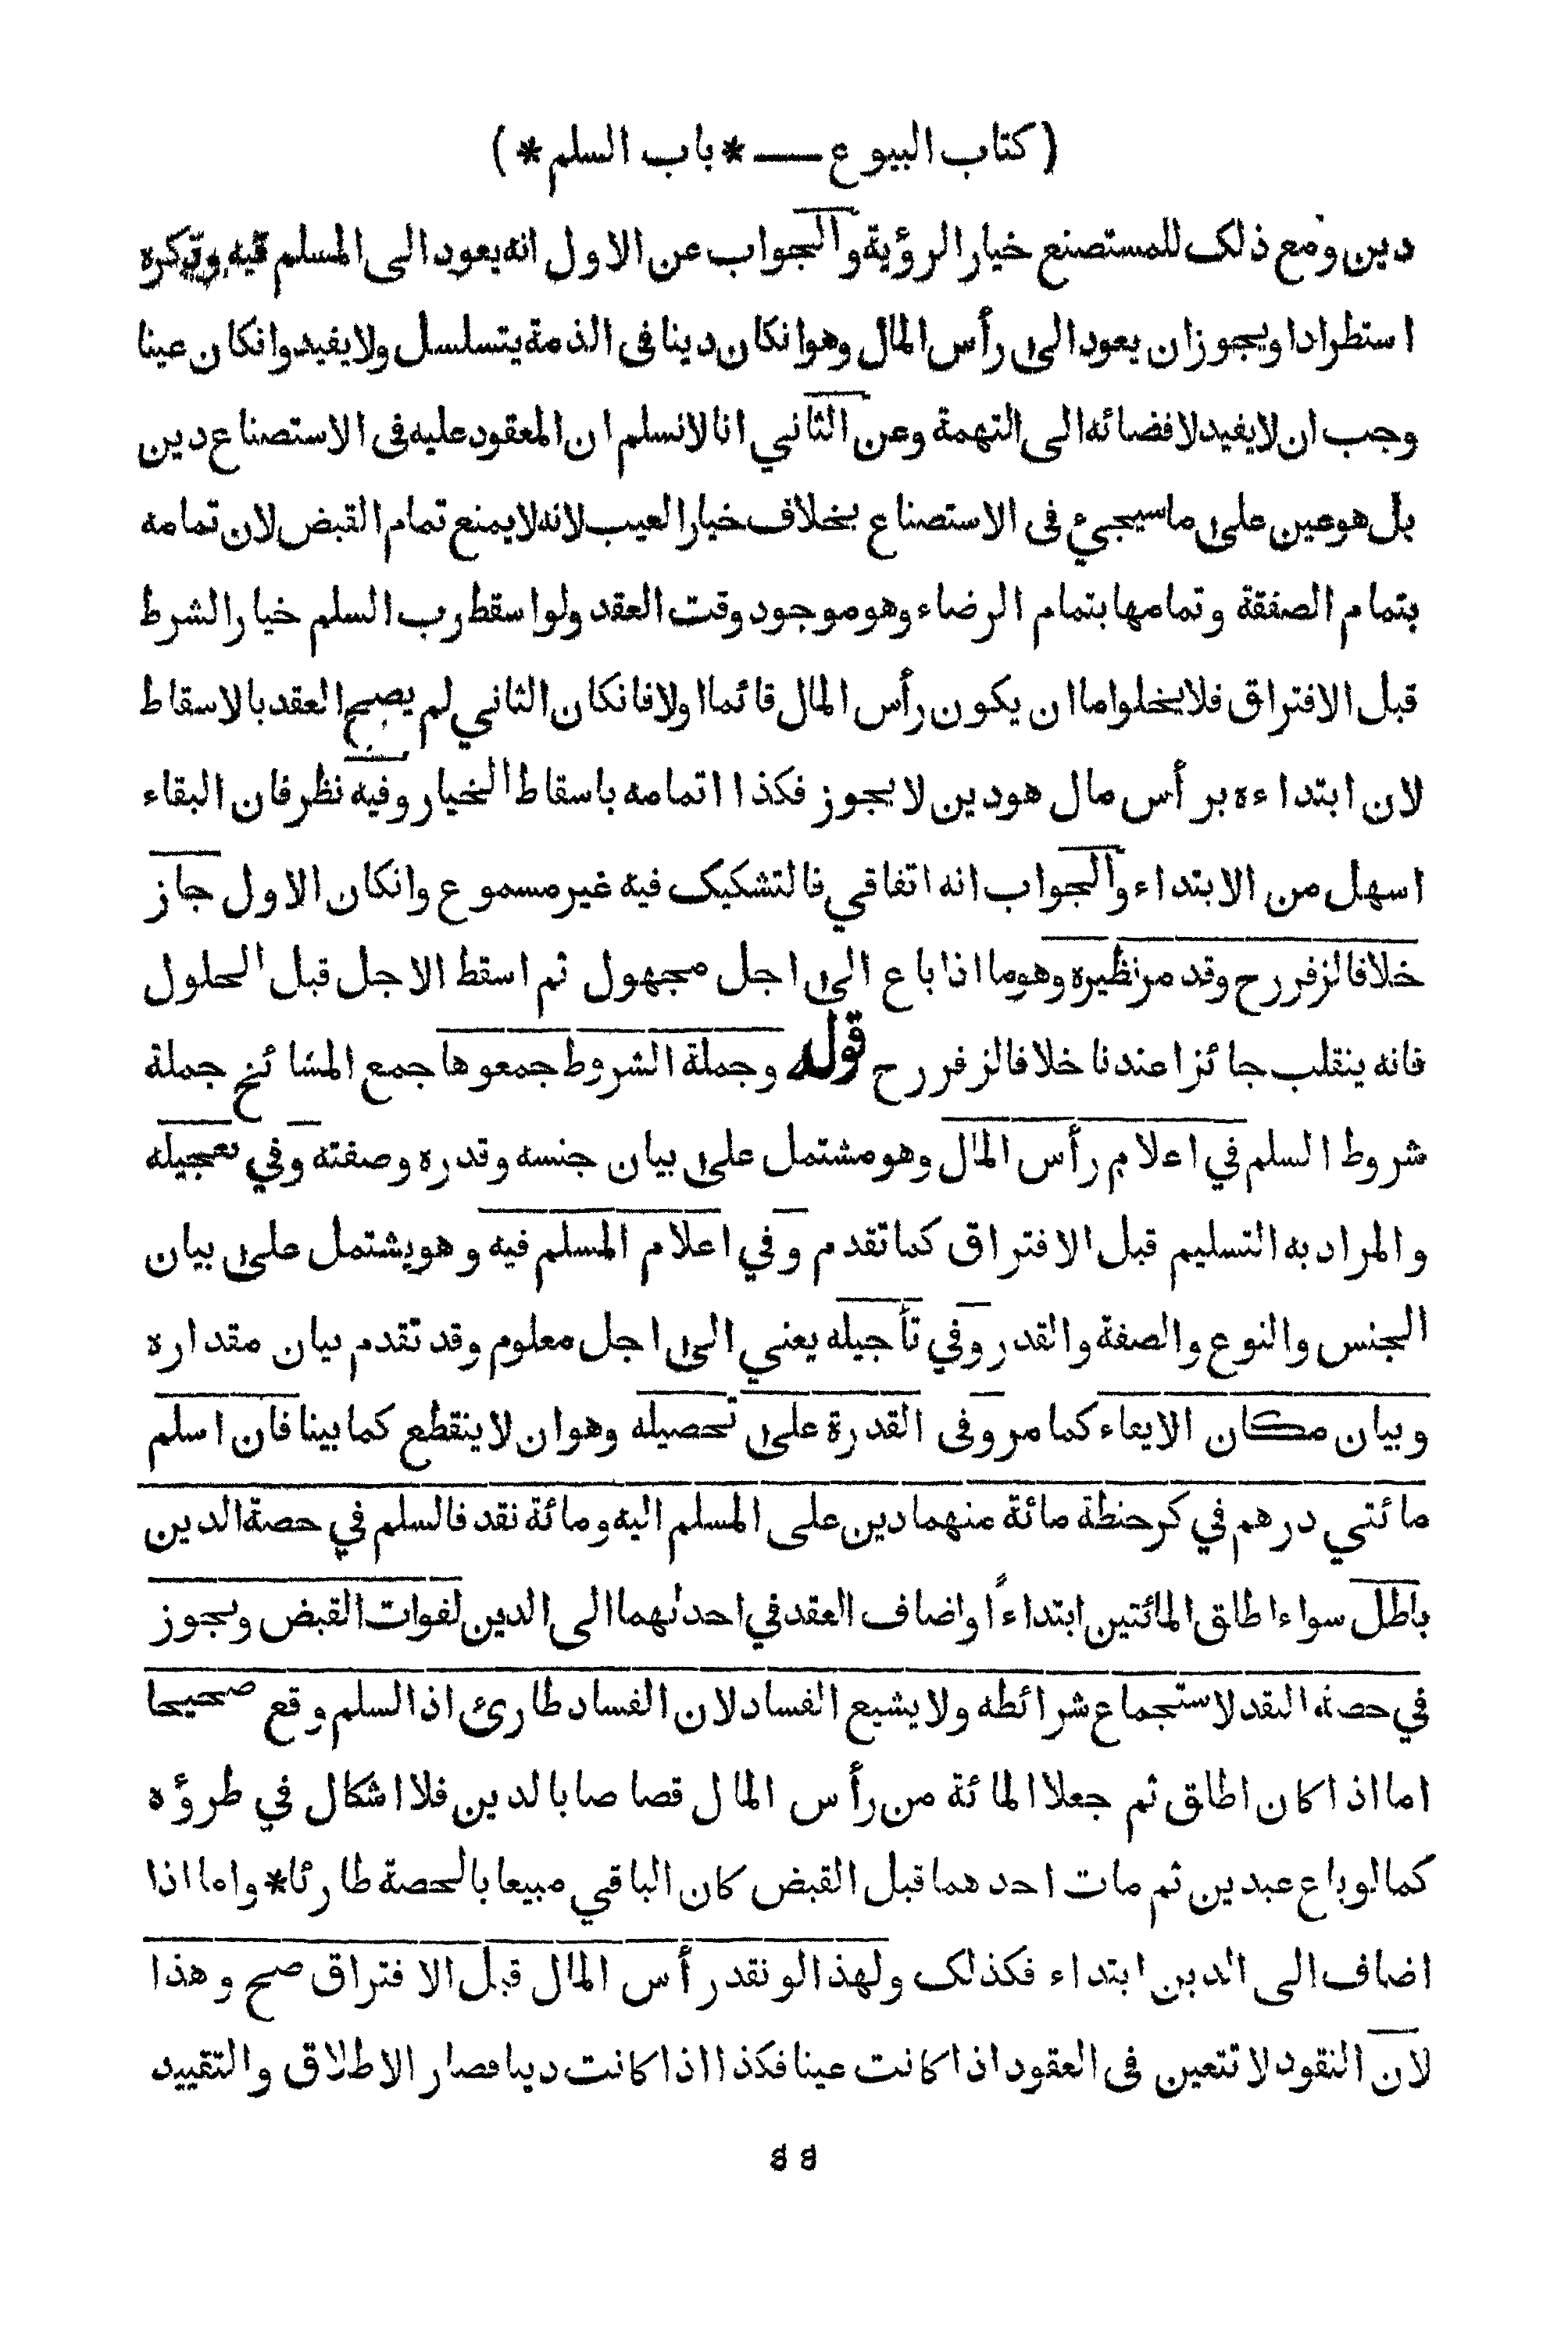 ( كتاب البيوع — * باب السلم * )
دين ومع ذلك للمستصنع خيار الرؤية والجواب عن الاول انه يعود الى المسلم فيه وذكره
استطرادا ويجوز ان يعود الى رأس المال وهو انكان دينا فى الذمة يتسلسل ولا يفيد وانكان عينا
وجب ان لا يفيد لافضائه الى التهمة وعن الثاني انا لا نسلم ان المعقود عليه فى الاستصناع دين
بل هو عين على ما سيجيء فى الاستصناع بخلاف خيار العيب لانه لا يمنع تمام القبض لان تمامه
بتمام الصفقة وتمامها بتمام الرضاء وهو موجود وقت العقد ولو اسقط رب السلم خيار الشرط
قبل الافتراق فلا يخلوا ما ان يكون رأس المال قائما اولا فانكان الثاني لم يصح العقد بالاسقاط
لان ابتداءه برأس مال هو دين لا يجوز فكذا اتمامه باسقاط الخيار وفيه نظر فان البقاء
اسهل من الابتداء والجواب انه اتفاقي فالتشكيك فيه غير مسموع وانكان الاول جاز
خلافا لزفر رح وقد مر نظيره وهو ما اذا باع الى اجل مجهول ثم اسقط الاجل قبل الحلول
فانه ينقلب جائزا عندنا خلافا لزفر رح قوله وجملة الشروط جمعوها جمع المشائخ جملة
شروط السلم في اعلام رأس المال وهو مشتمل على بيان جنسه وقدره وصفته وفي تعجيله
والمراد به التسليم قبل الافتراق كما تقدم وفي اعلام المسلم فيه وهو يشتمل على بيان
الجنس والنوع والصفة والقدر وفي تأجيله يعني الى اجل معلوم وقد تقدم بيان مقداره
وبيان مكان الايفاء كما مر وفى القدرة على تحصيله وهو ان لا ينقطع كما بينا فان اسلم
مائتي درهم في كر حنطة مائة منهما دين على المسلم اليه ومائة نقد فالسلم في حصة الدين
باطل سواء اطلق المائتين ابتداءً او اضاف العقد في احدىهما الى الدين لفوات القبض ويجوز
في حصة النقد لاستجماع شرائطه ولا يشيع الفساد لان الفساد طارئ اذ السلم وقع صحيحا
اما اذا كان اطلق ثم جعلا المائة من رأس المال قصاصا بالدين فلا اشكال في طروّه
كما لو باع عبدين ثم مات احدهما قبل القبض كان الباقي مبيعا بالحصة طارئا * واما اذا
اضاف الى الدين ابتداء فكذلك ولهذا لو نقد رأس المال قبل الافتراق صح وهذا
لان النقود لا تتعين فى العقود اذا كانت عينا فكذا اذا كانت دينا فصار الاطلاق والتقييد